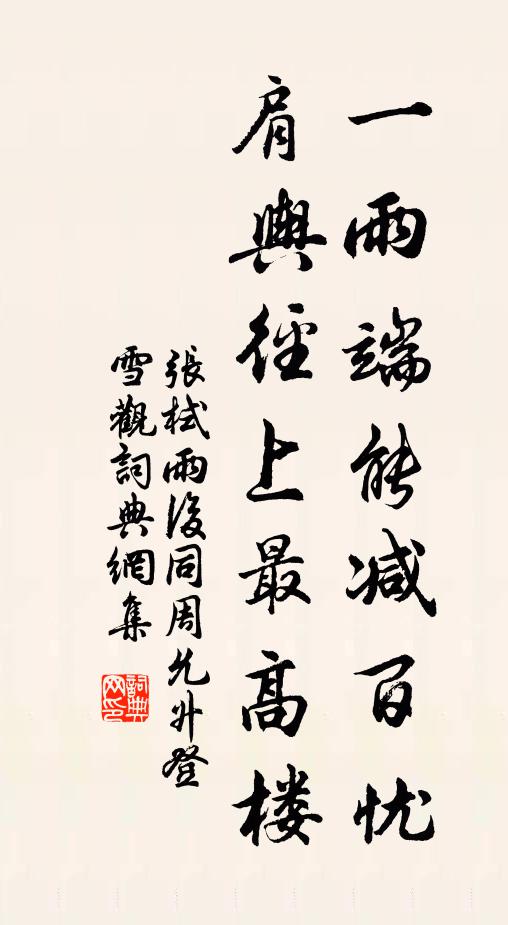 一雨端能减百忧
肩輿徑上最高楼
張栻雨後同周允升登
雪觀詞典網集
詞典网印